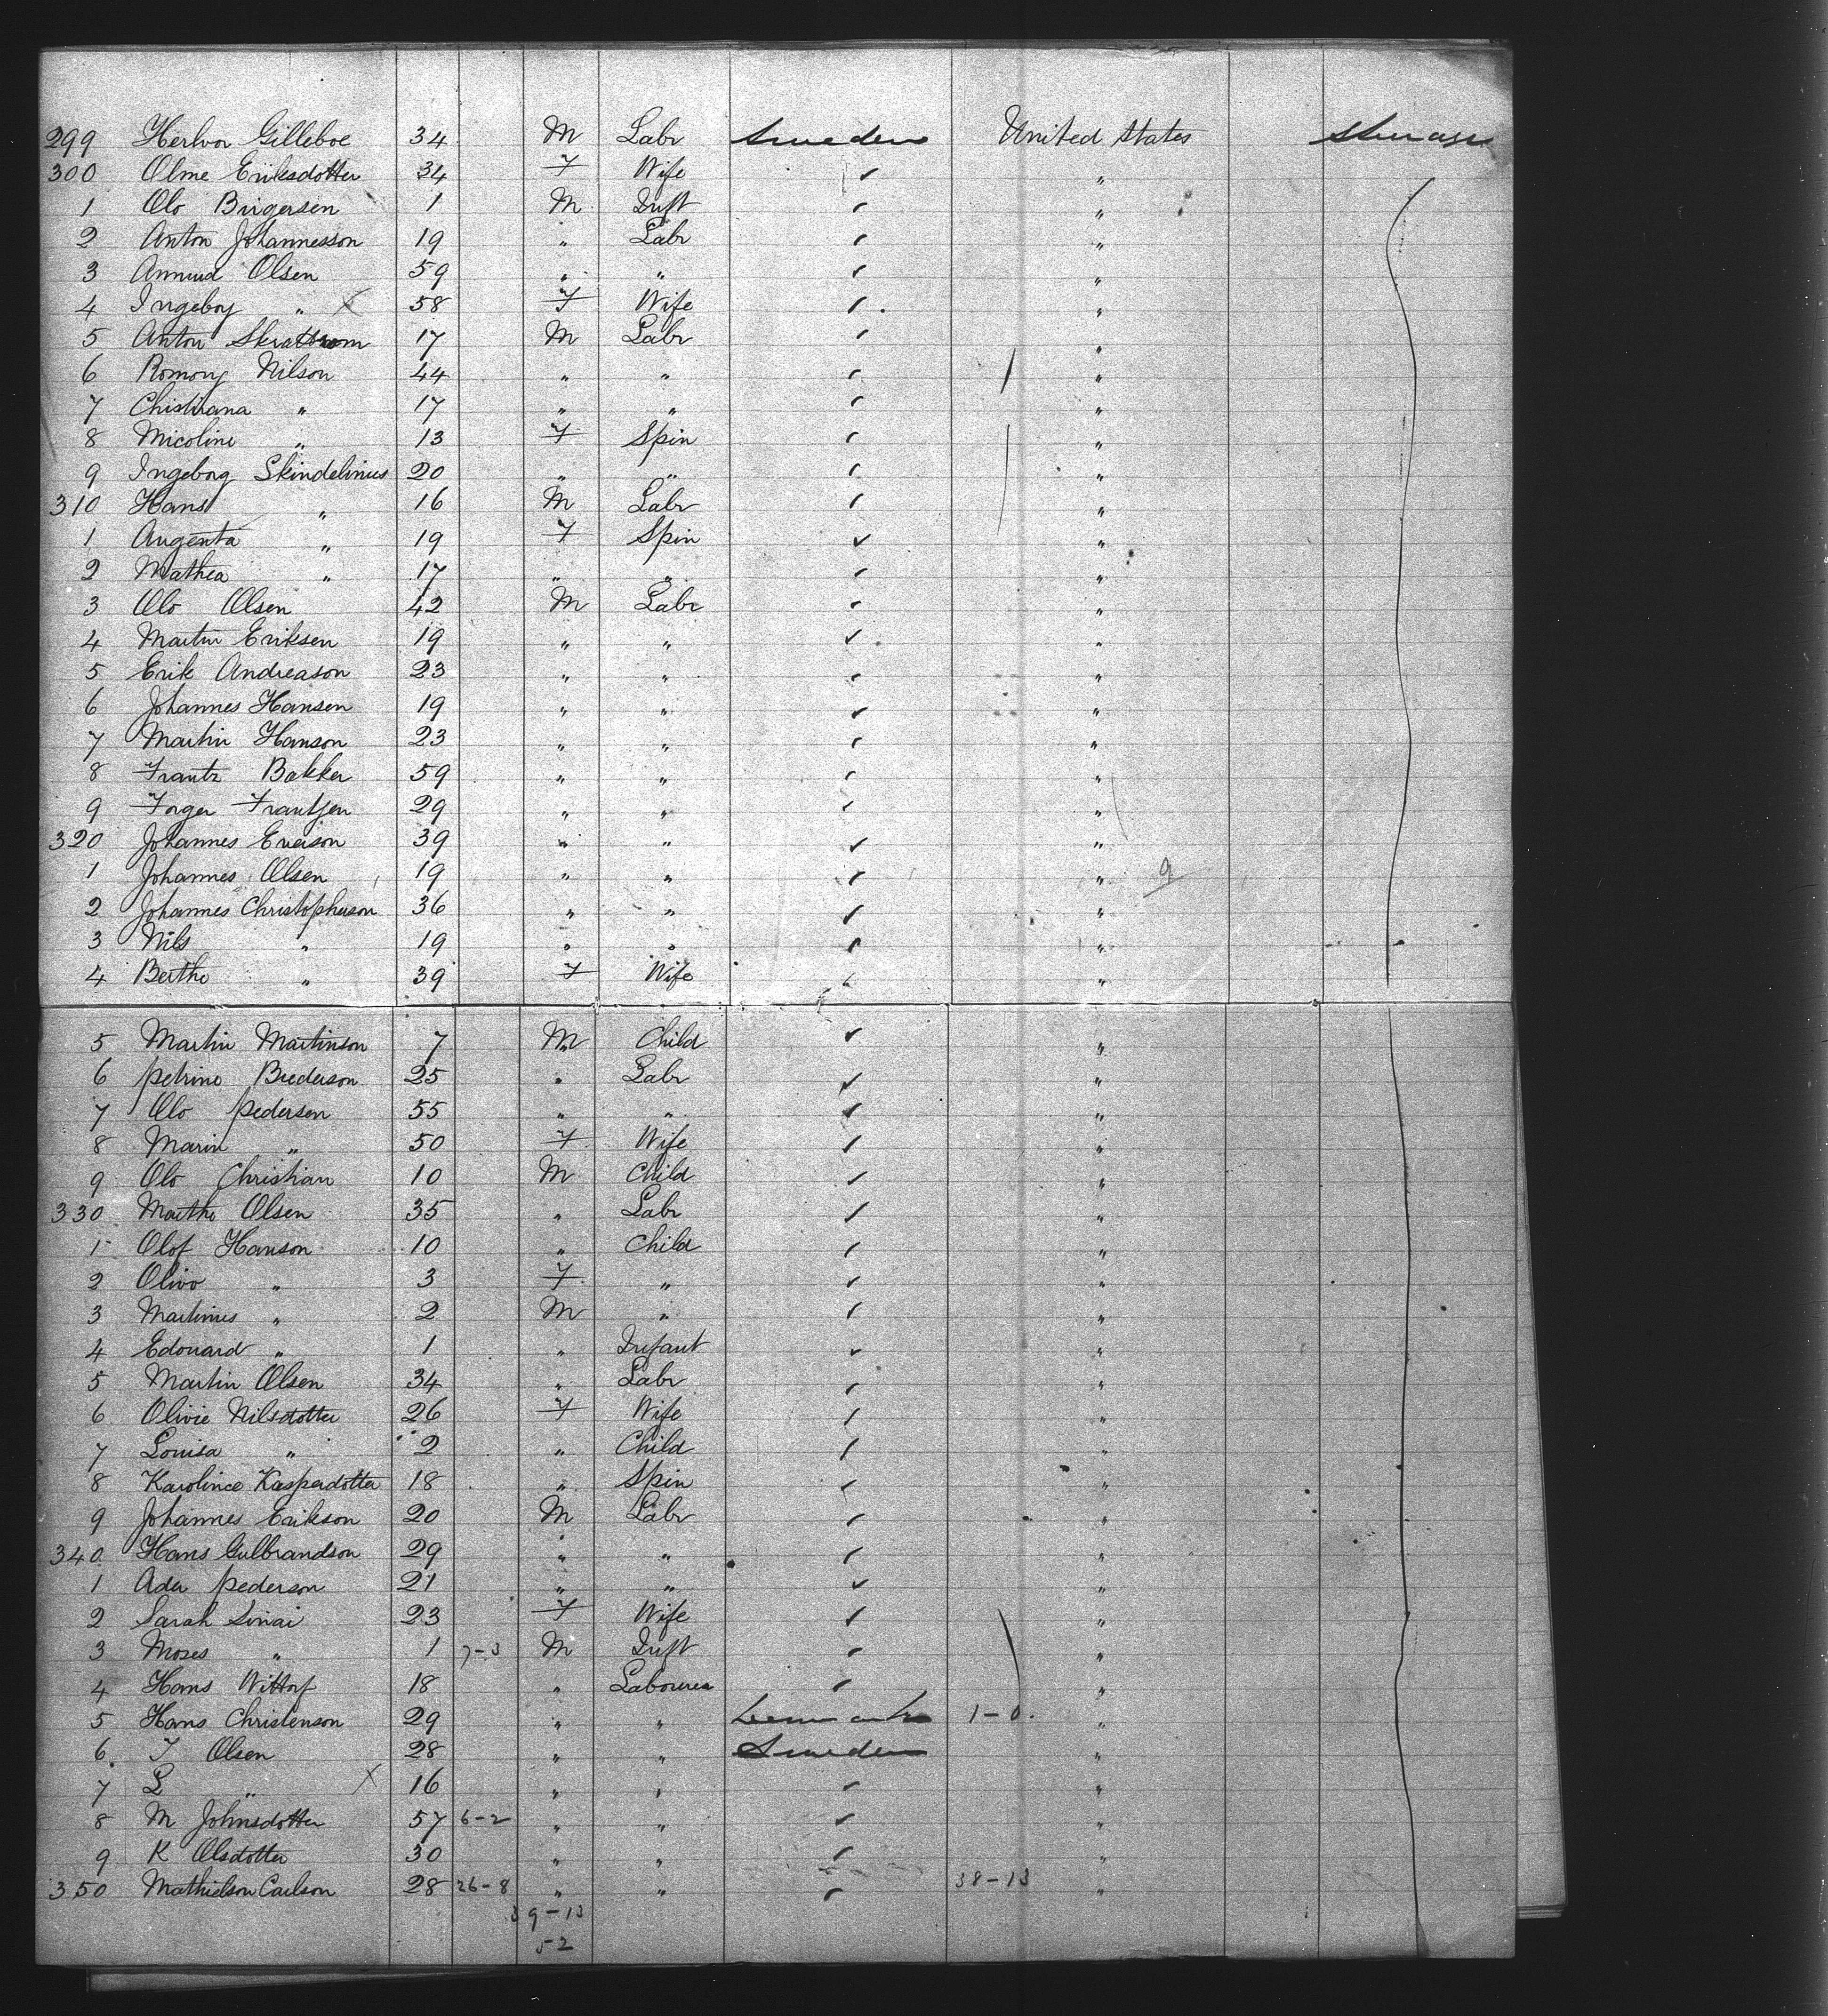 299 Herlvor Gilleboe 34 M Labr Sweden United States Steerage
300 Olme Eriksdotter 34 F Wife ✓ "
1 Olo Birgersen 1 M Inft ✓ "
2 Anton Johannesson 19 " Labr ✓ "
3 Ammud Olsen 59 " " ✓ "
4 Ingeborg " X 58 F Wife ✓ "
5 Anton Skrattrom 17 M Labr ✓ "
6 Romony Nilson 44 " " ✓ "
7 Chistiana " 17 " " ✓ "
8 Nicoline " 13 F Spin ✓ "
9 Ingeborg Skindelinus 20 " " ✓ "
310 Hans " 16 M Labr ✓ "
1 Augenta " 19 F Spin ✓ "
2 Mathea " 17 " " ✓ "
3 Olo Olsen 42 M Labr ✓ "
4 Martin Eriksen 19 " " ✓ "
5 Erik Andreason 23 " " ✓ "
6 Johannes Hansen 19 " " ✓ "
7 Martin Hanson 23 " " ✓ "
8 Frantz Bakker 59 " " ✓ "
9 Forger Frantzen 29 " " ✓ "
320 Johannes Everson 39 " " ✓ "
1 Johannes Olsen 19 " " ✓ " 9
2 Johannes Christopherson 36 " " ✓ "
3 Nils " 19 " " ✓ "
4 Berthe " 39 F Wife ✓ "
5 Martin Martinson 7 M Child ✓ "
6 Petrine Brederson 25 " Labr ✓ "
7 Olo Pedersen 55 " " ✓ "
8 Marin " 50 F Wife ✓ "
9 Olo Christian 10 M Child ✓ "
330 Marthe Olsen 35 " Labr ✓ "
1 Olof Hanson 10 " Child ✓ "
2 Olivo " 3 F " ✓ "
3 Martinus " 2 M " ✓ "
4 Edouard " 1 " Infant ✓ "
5 Martin Olsen 34 " Labr ✓ "
6 Olivie Nilsdotter 26 F Wife ✓ "
7 Louisa " 2 " Child ✓ "
8 Karolince Kasperdotter 18 " Spin ✓ "
9 Johannes Erikson 20 M Labr ✓ "
340 Hans Gulbrandson 29 " " ✓ "
1 Ader Pederson 21 " " ✓ "
2 Sarah Sinai 23 F Wife ✓ "
3 Moses " 1 7-3 M Inft ✓ "
4 Hans Wittorf 18 " Labourer ✓ "
5 Hans Christenson 29 " " Denmark 1-0 "
6 T Olsen 28 " " Sweden "
7 L " X 16 " " ✓ "
8 M Johnsdotter 57 6-2 " " ✓ "
9 K Olsdotter 30 " " ✓ "
350 Mathielson Carlson 28 26-8 " " ✓ 38-13 "
39-13
52